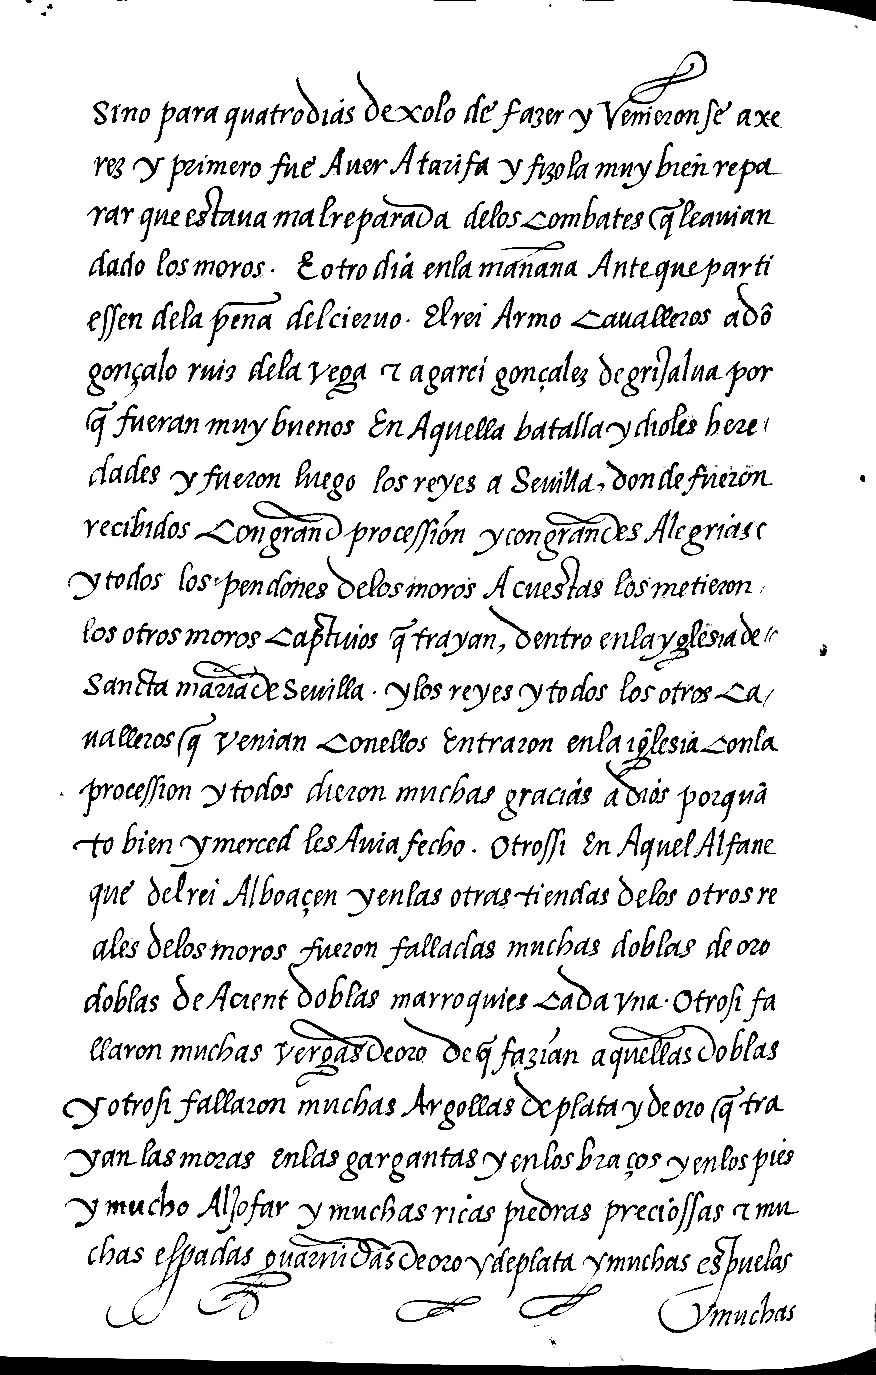 Sino para quatro dias dexolo de fazer y Venieronse axe
rez y primero fue Auer A tarifa y fizola muy bien repa
rar que estaua mal reparada delos Combates q̃ le auian
dado los moros. E otro dia en la mañana Ante que parti
essen dela peña del cieruo. El rei Armo Caualleros a dõ
gonçalo ruiz dela Vega τ a garci gonçalez de grijalua por
q̃ fueran muy buenos En Aquella batalla y dioles here
dades y fueron luego los reyes a Seuilla, donde fueron
recibidos Con grand processión y con grandes Alegrias
y todos los pendones delos moros A cuestas los metieron
los otros moros Captiuios q̃ trayan, dentro en la yglesia de
Sancta maria de Seuilla. y los reyes y todos los otros Ca/
ualleros q̃ Venian Con ellos Entraron en la iglesia Con la
procession y todos dieron muchas graciás a diós por quã
to bien y merced les Auia fecho. Otrossi En Aquel Alfane
que del rei Alboaçen y en las otras tiendas delos otros re
ales delos moros fueron falladas muchas doblas de oro
doblas de A cient doblas marroquies Cada vna. Otrosi fa
llaron muchas Vergas de oro de q̃ fazían aquellas doblas
y otrosi fallaron muchas Argollas de plata y de oro q̃ tra
yan las moras en las gargantas y en los braços y en los pies
y mucho Aljofar y muchas ricas piedras preciossas τ mu
chas espadas guarnidas de oro y de plata y muchas espuelas
y muchas